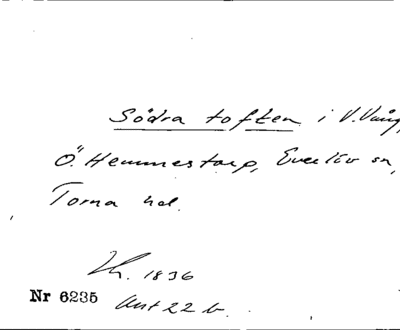 Södra toften i V. Vång,
Ö. Hemmestorp, Everlöv sn,
Torna hd.
1836
Nr 6235
Akt 22 b.